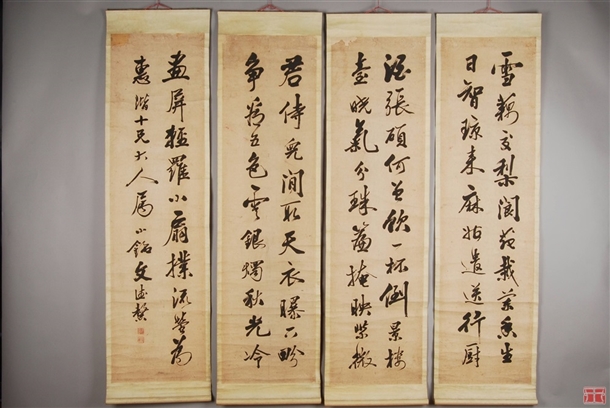 雪藕交梨閬苑栽蘭香生
日智瓊来麻姑遣送行厨
酒張碩何曾飲一杯倒景樓
臺曉氣分珠簾掩映紫微
君侍兒閒取天衣曝下畍
爭看五色雲銀燭秋光冷
畫屏輕羅小扇撲流螢為
惠階十兄大人屬小銘文